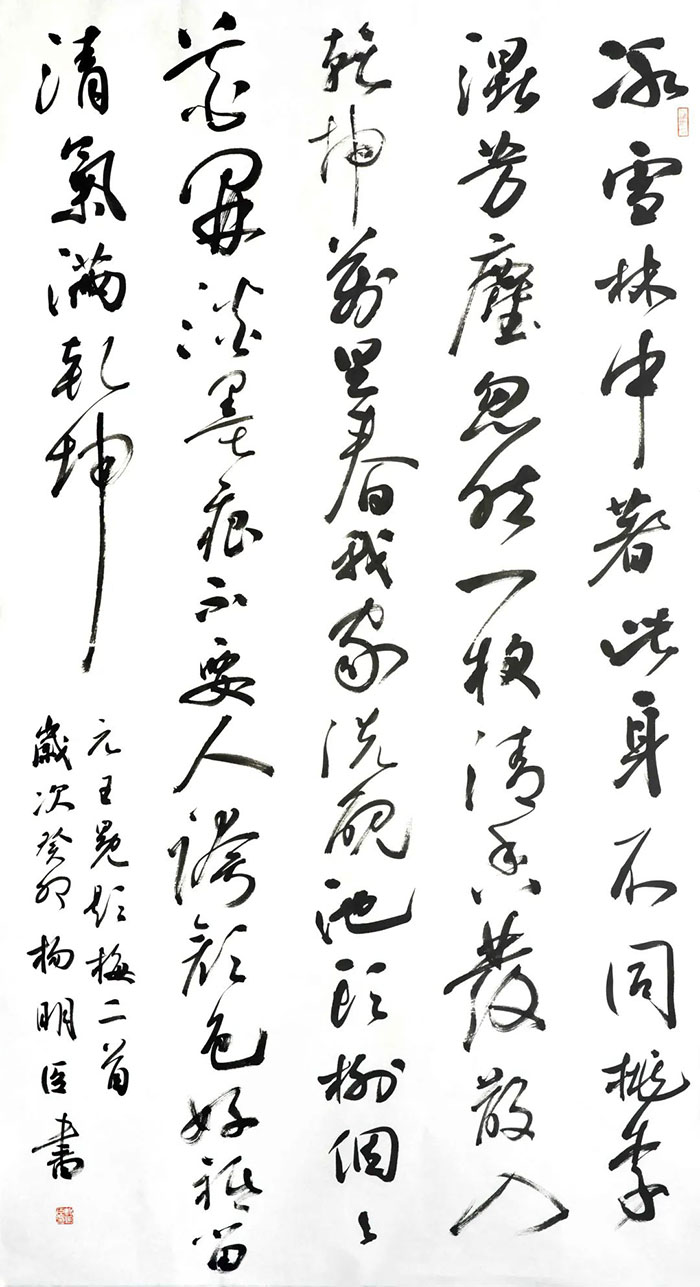 冰雪林中著此身不同桃李
混芳塵忽然一夜清香發散入
乾坤萬里春我家洗硯池頭樹個々
花開淡墨痕不要人誇顏色好祇留
清氣滿乾坤
元王冕題梅二首
歲次癸卯楊明臣書